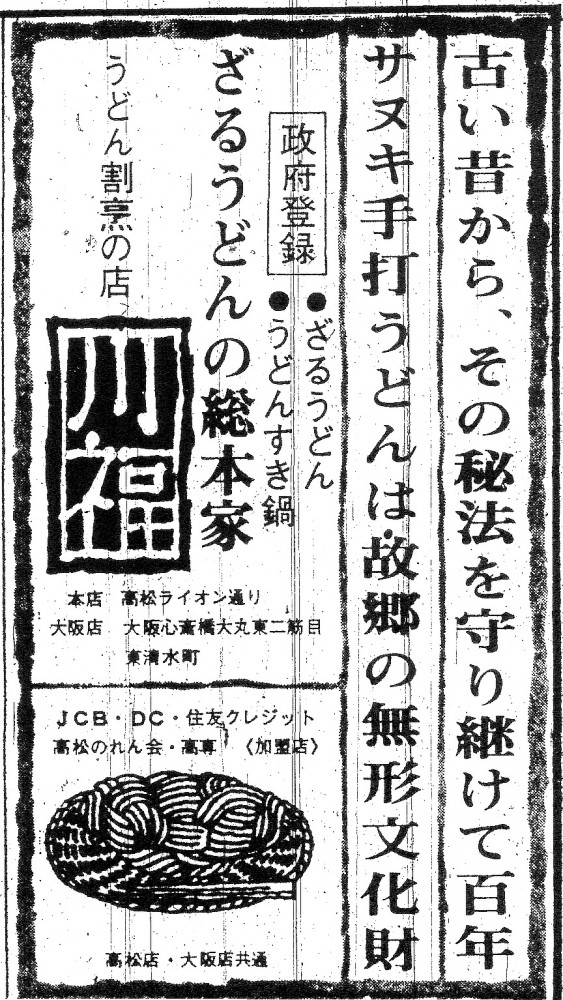 古い昔から、その秘法を守り継けて百年
サヌキ手打うどんは故郷の無形文化財
政府登録
●ざるうどん
●うどんすき鍋
ざるうどんの総本家
うどん割烹の店
川福
本店 高松ライオン通り
大阪店 大阪心斎橋大丸東二筋目
東清水町
JCB・DC・住友クレジット
高松のれん会・高専 〈加盟店〉
高松店・大阪店共通